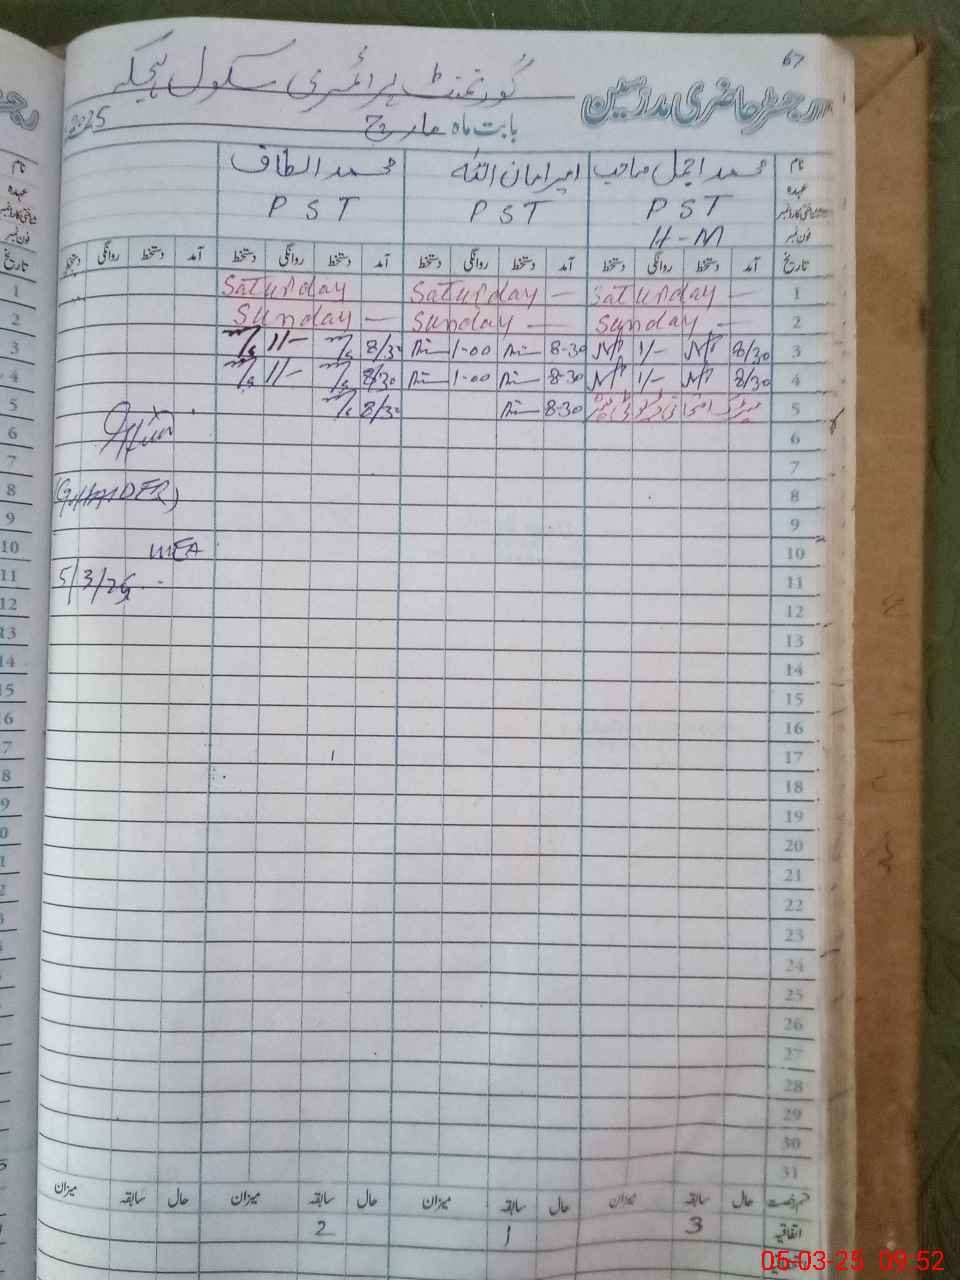 67
گورنمنٹ پرائمری سکول
رجسٹر حاضری مدرسین
بابت ماہ مارچ 2025
نام محمد اجمل صاحب امیر امان اللہ محمد الطاف
عہدہ
PST PST PST
فون نمبر H-M
تاریخ آمد دستخط روانگی دستخط آمد دستخط روانگی دستخط آمد دستخط روانگی دستخط آمد دستخط روانگی دستخط
1 Saturday — Saturday — Saturday
2 Sunday — Sunday — Sunday —
3 8/30 1/- 8-30 1-00 8/30 1/-
4 8/30 1/- 8-30 1-00 8/30 1/-
5 8-30 8/30
6
7
8
9
10 MEA
11 5/3/25
12
13
14
15
16
17
18
19
20
21
22
23
24
25
26
27
28
29
30
31
قسم رخصت حال سابقہ میزان حال سابقہ میزان حال سابقہ میزان حال سابقہ میزان
اتفاقیہ 3 1 2
05-03-25 09:52